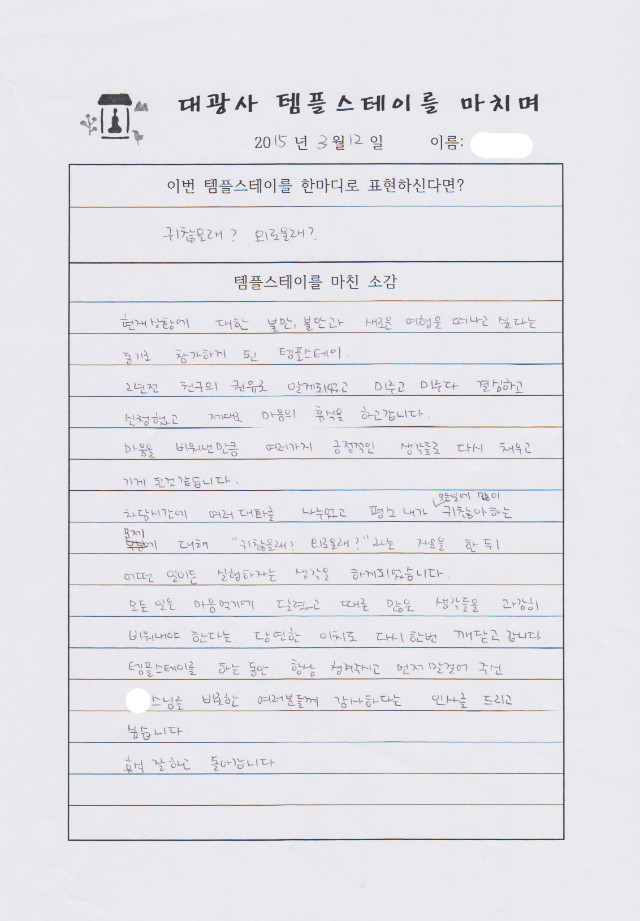 대광사 템플스테이를 마치며
2015년 3월 12일 이름:
이번 템플스테이를 한마디로 표현하신다면?
귀찮을래? 외로울래?
템플스테이를 마친 소감
현재상황에 대한 불만, 불안과 새로운 여행을 떠나고 싶다는
동기로 참가하게 된 템플스테이.
2년전 친구의 권유로 알게되었고 미루고 미루다 결심하고
신청했고 제대로 마음의 휴식을 하고갑니다.
마음을 비워낸만큼 여러가지 긍정적인 생각들로 다시 채우고
가게 된것같습니다.
차담시간에 여러 대화를 나누었고 평소 내가 모든일에 많이 귀찮아 하는
문제에 대해 "귀찮을래? 외로울래?" 라는 자문을 한 뒤
어떤 일이든 실험하자는 생각을 하게되었습니다.
모든 일은 마음먹기에 달렸고 때론 많은 생각들을 과감히
비워내야 한다는 당연한 이치도 다시한번 깨닫고 갑니다
템플스테이를 하는 동안 항상 챙겨주시고 먼저 말걸어 주신
스님을 비롯한 여러분들께 감사하다는 인사를 드리고
싶습니다
휴식 잘 하고 돌아갑니다